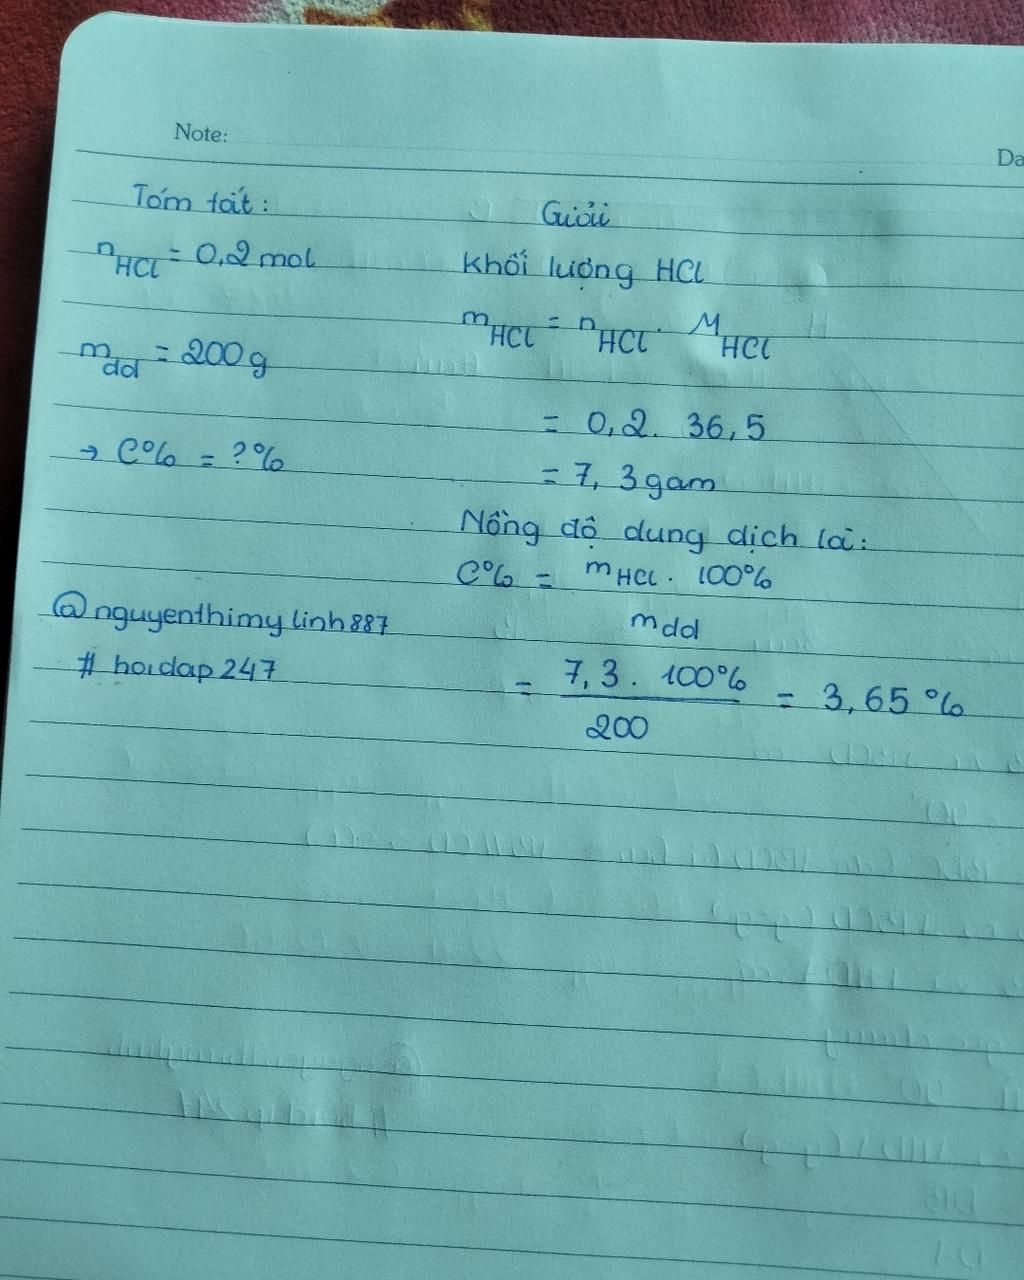 Note:
Da
Tóm tắt:
n HCl = 0,2 mol
m dd = 200g
→ C% = ?%
@nguyenthimylinh887
# hoidap247
Giải
Khối lượng HCl
m HCl = n HCl . M HCl
= 0,2. 36,5
= 7,3 gam
Nồng độ dung dịch là:
C% = m HCl . 100%
m dd
= 7,3 . 100% = 3,65 %
200